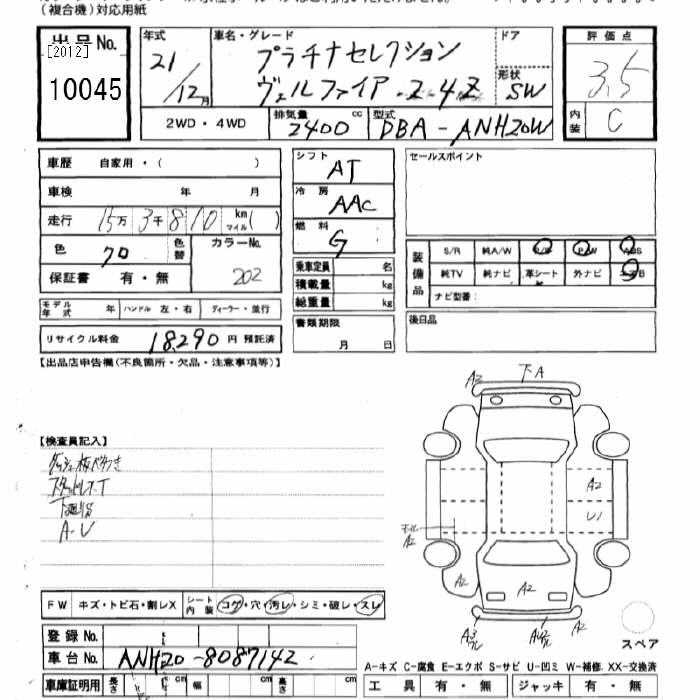 (複合機)対応用紙
出品No.
[2012]
10045
年式
21/12月
車名・グレード
プラチナセレクション
ヴェルファイア 2.4Z
ドア
形状
SW
評価点
3.5
内装
C
2WD・4WD
排気量
2400 cc
型式
DBA-ANH20W
車歴 自家用・( )
車検 年 月
走行 15万 3千 810 km マイル( )
色 クロ
色替
カラーNo.
202
保証書 有・無
モデル年式 年
ハンドル 左・右
ディーラー・並行
リサイクル料金 18,290 円 預託済
シフト
AT
冷房
AAC
燃料
G
乗車定員 名
積載量 kg
総重量 kg
書類期限
月 日
セールスポイント
装備品
S/R 純A/W P/S P/W ABS
純TV 純ナビ 革シート 外ナビ
ナビ型番:
後日品
【出品店申告欄(不良箇所・欠品・注意事項等)】
【検査員記入】
A-U
下A
A2
A2
U1
A2
A2
A2
A2
FW キズ・トビ石・割レX
シート内装 コゲ・穴・汚レ・シミ・破レ・スレ
スペア
登録No.
車台No. ANH20-8087142
車庫証明用 長さ cm 幅 cm 高さ cm
A-キズ C-腐食 E-エクボ S-サビ U-凹ミ W-補修 XX-交換済
工具 有・無 ジャッキ 有・無